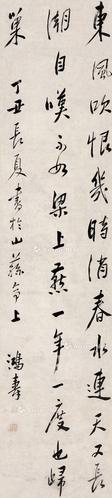 東風吹恨幾時消春水連天又長
潮自嘆不如梁上燕一年一度也歸
巢 丁丑長夏書於山蘇舟上 鴻壽